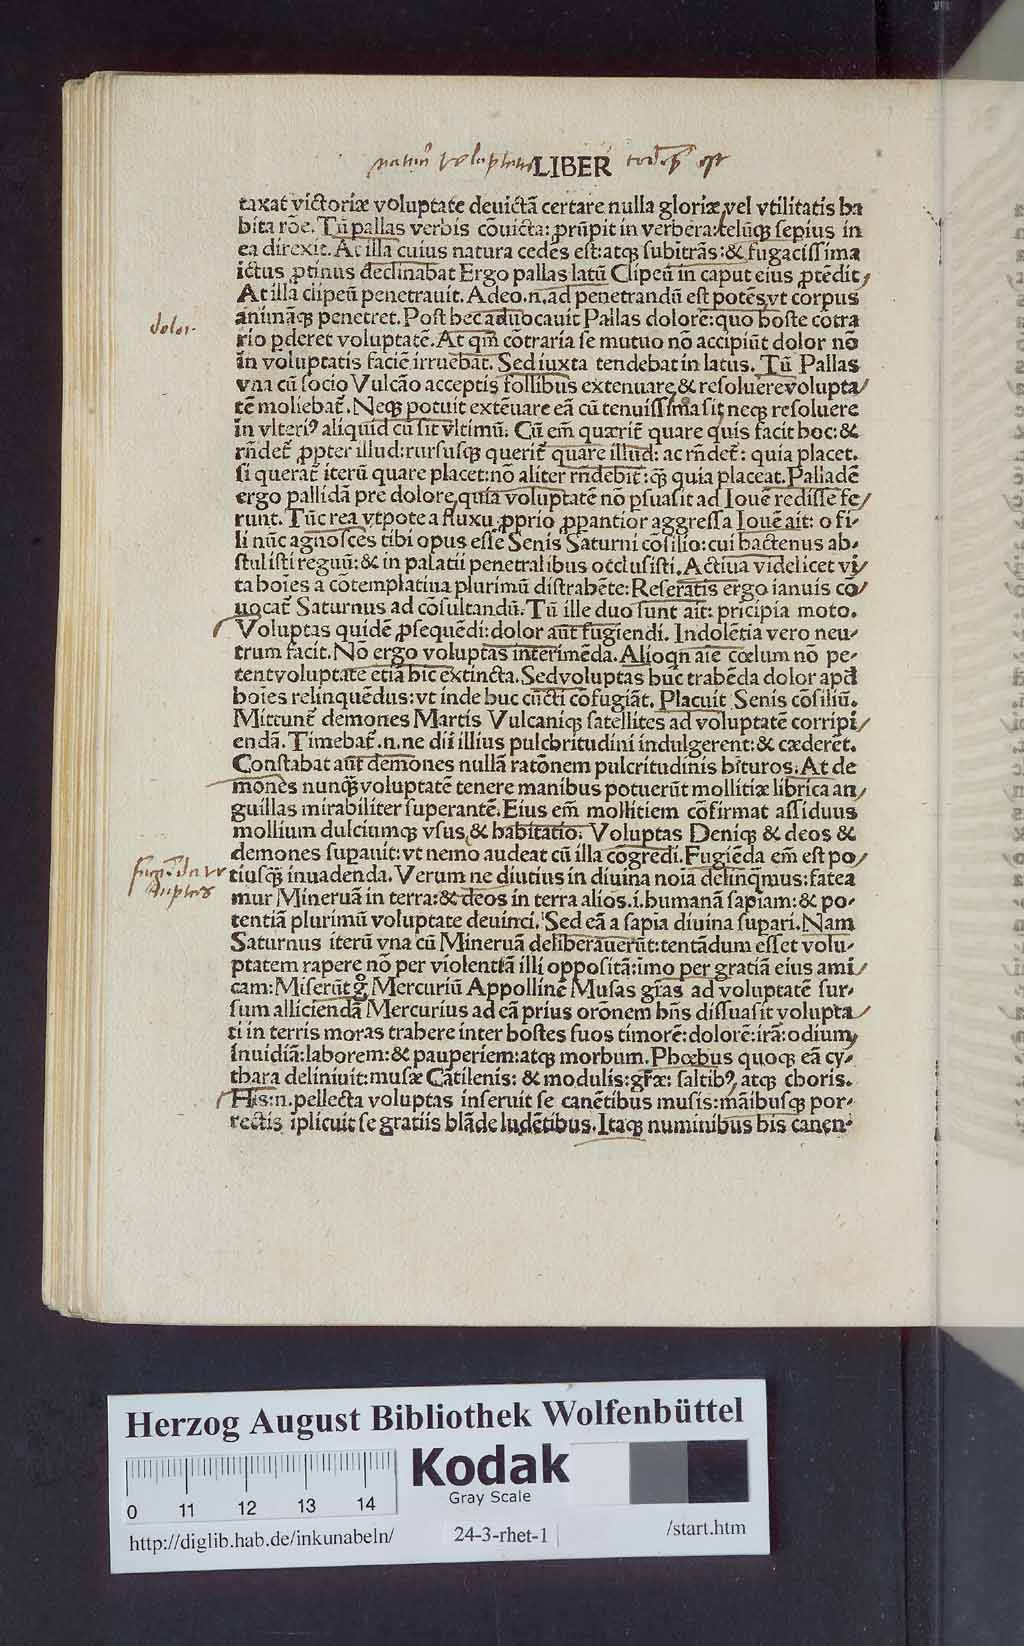 LIBER
taxat victoriæ voluptate deuictā certare nulla gloriæ vel vtilitatis ha
bita rōe. Tū pallas verbis cōuicta: ꝓrūpit in verbera: telūqꝫ sepius in
ea direxit. At illa cuius natura cedēs est: atqꝫ subītrās: & fugacissima
ictus ꝓtinus declinabat Ergo pallas latū Clipeū in caput eius ꝓtēdit,
At illa clipeū penetrauit. Adeo .n. ad penetrandū est potēs, vt corpus
animāqꝫ penetret. Post hec aduocauit Pallas dolorē: quo hoste cōtra
dolor
rio ꝑderet voluptatē. At qm̄ cōtraria se mutuo nō accipiūt dolor nō
in voluptatis faciē irruebat. Sed iuxta tendebat in latus. Tū Pallas
vna cū socio Vulcāo acceptis follibus extenuare, & resoluere volupta/
tē moliebat᷑. Neqꝫ potuit extēuare eā cū tenuissima sit, neqꝫ resoluere
in vlteriꝰ aliquid cū sit vltimū. Cū em̄ quærit᷑ quare quis facit hoc: &
rn̄det᷑ ꝓpter illud: rursusqꝫ querit᷑ quare illud: ac rn̄det᷑: quia placet.
si querat᷑ iterū quare placet: nō aliter rn̄debit᷑: qꝫ̄ quia placeat. Palladē
ergo pallidā pre dolore, quia voluptatē nō ꝑsuasit ad Iouē redisse fe/
runt. Tūc rea vtpote a fluxu ꝓprio ꝓpantior aggressa Iouē ait: o fi-
li nūc agnosces tibi opus esse Senis Saturni cōsilio: cui hactenus ab-
stulisti regnū: & in palatii penetralibus occlusisti. Actiua videlicet vi/
ta hoīes a cōtemplatiua plurimū distrahēte: Reseratis ergo ianuis cō/
uocat᷑ Saturnus ad cōsultandū. Tū ille duo sunt ait: pricipia moto.
Voluptas quidē ꝓsequēdi: dolor aūt fugiendi. Indolētia vero neu-
trum facit. Nō ergo voluptas interimēda. Alioqn aīe cœlum nō pe-
tent voluptate etiā hic extincta. Sed voluptas huc trahēda dolor apd̄
hoīes relinquēdus: vt inde huc cūcti cōfugiāt. Placuit Senis cōsiliū.
Mittunt᷑ demones Martis Vulcaniqꝫ satellites ad voluptatē corripi/
endā. Timebat᷑ .n. ne dii illius pulchritudini indulgerent: & cæderēt.
Constabat aūt demones nullā ratōnem pulcritudinis hituros. At de
mones nunqꝫ̄ voluptatē tenere manibus potuerūt mollitiæ librica an/
guillas mirabiliter superantē. Eius em̄ mollitiem cōfirmat assiduus
mollium dulciumqꝫ vsus, & habitatio. Voluptas Deniqꝫ & deos &
demones supauit: vt nemo audeat cū illa cōgredi. Fugiēda em̄ est po/
tiusqꝫ̄ inuadenda. Verum ne diutius in diuina noīa delinqmus: fatea
mur Mineruā in terra: & deos in terra alios .i. humanā sapiam: & po-
tentiā plurimū voluptate deuinci. Sed eā a sapia diuina supari. Nam
Saturnus iterū vna cū Mineruā deliberauerūt: tentādum esset volu-
ptatem rapere nō per violentiā illi oppositā: imo per gratiā eius ami/
cam: Miserūt g° Mercuriū Appollinē Musas gr̄as ad voluptatē sur-
sum alliciendā Mercurius ad eā prius orōnem hn̄s dissuasit volupta/
ti in terris moras trahere inter hostes suos timorē: dolorē: irā: odium,
inuidiā: laborem: & pauperiem: atqꝫ morbum. Phœbus quoqꝫ eā cy-
thara deliniuit: musæ Cātilenis: & modulis: gr̄æ: saltibꝰ, atqꝫ choris.
His .n. pellecta voluptas inseruit se canētibus musis: māibusqꝫ por-
rectis īplicuit se gratiis blāde ludētibus. Itaqꝫ numinibus his canen-
Herzog August Bibliothek Wolfenbüttel
Kodak
Gray Scale
0 11 12 13 14
http://diglib.hab.de/inkunabeln/ 24-3-rhet-1 /start.htm